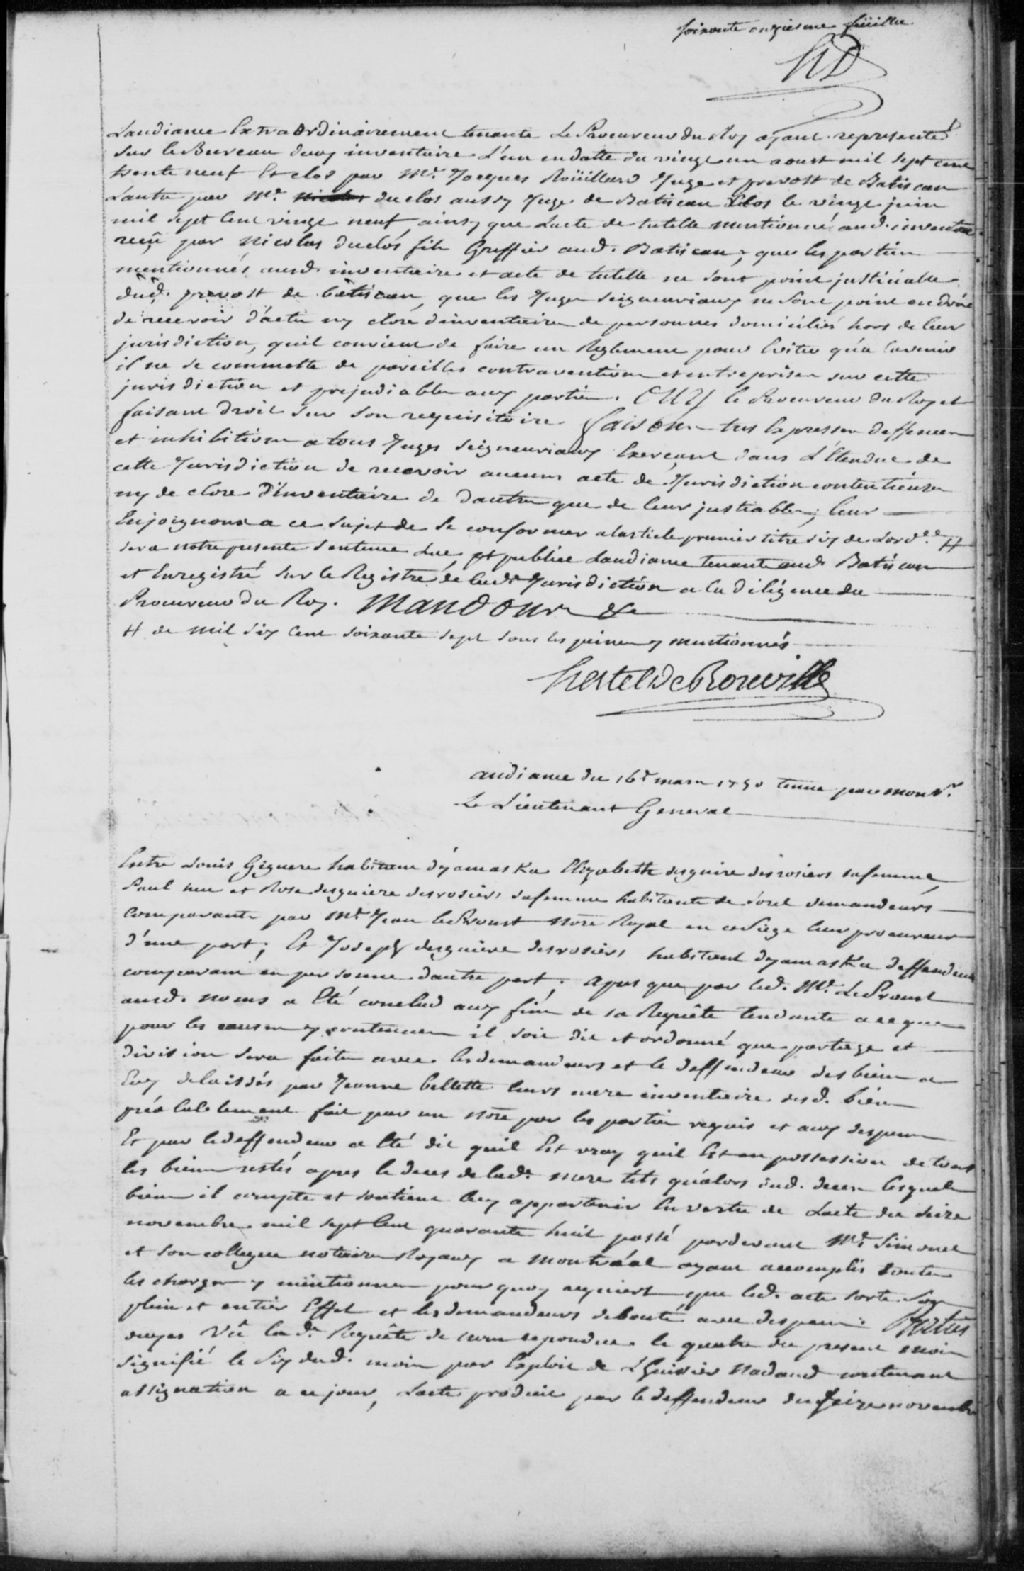 soixante onzieme feüille
HD
Laudiance Extraordinairement tenante Le Procureur du Roy ayant representé
sur le Bureau deux inventaire L'un en datte du vingt un aoust mil sept cent
trente neuf Et clos par Mr. Jacques Roüillard Juge et prevost de Batiscan
Lautre par Mr. duclos aussy Juge de Batiscan Clos le vingt juin
mil sept Cent vingt neuf ainsy que Lacte de tutelle mentionné aud. inventre
reçu par Nicolas Duclos fils Greffier aud. Batiscan, que les parties
mentionnés ausd. inventaire et acte de tutelle ne sont point justiciable
dud. prevost de batiscan, que les Juges seigneuriaux ne sont point en droit
de recevoir d'actes ny clore d'inventaire de personnes domiciliés hors de leur
jurisdiction, quil convient de faire un Reglement pour Eviter qu'a Lavenir
il ne se commette de pareilles contraventions et entreprises sur cette
jurisdiction et prejudiable aux parties. OUY le Procureur du Roy et
faisant droit sur son requisitoire faisons tres Expresses deffences
et inhibitions a tous Juges seigneuriaux Exerçant dans L'Etendue de
cette Jurisdiction de recevoir aucuns acte de Jurisdiction contentieuse
ny de clore d'Inventaire de dautres que de leur justiable; leur
Enjoignons a ce sujet de se conformer a larticle premier titre six de Lordce H
sera notre presente sentence lue, et publiée Laudiance tenante aud. Batiscan
et Enregistré sur le Registre de lad. Jurisdiction a la diligence du
Procureur du Roy. MANDONS &c
H de mil six cent soixante sept sous les peines y mentionnés
hertel De Rouville
audiance du 16e mars 1750 tenue par monsr.
Le Lieutenant General
Entre Louis Giguere habitant d'yamaska Elizabeth desguire desrosiers safemme
Paul hue et Rose desguiere desrosiers safemme habitants de sorel demandeurs
comparants par Mr. Jean LeProust Notre Royal en ce siege leur procureur
d'une part; Et Joseph desguiere desrosiers habitant dyamaska deffendeur
comparant en personne dautre part; apres que par led. Mr. LeProust
ausd. noms a Eté conclud aux fins de sa Requête tendante a ce que
pour les causes y contenues il soit dit et ordonné que partage et
division sera faite avec lesdemandeurs et le deffendeur des biens a
Eux delaissés par Jeanne bellette leurs mere inventaire desd. biens
préalablement fait par un Notre par les parties requis et aux despens
Et par ledeffendeur a Eté dit quil Est vray quil Est en possession de tous
les biens restés apres le deces de lad. mere tels qualors dud. deces lesquels
biens il compte et soutient luy appartenir En vertu de Lacte du seize
novembre mil sept Cent quarante huit passé pardevant Mr. Simonet
et son collegue notaires Royaux a montréal ayant accomplis toute
les charges y mentionnes pourquoy requiert que led. acte sorte son
plein et entier Effet et lesdemandeurs debouté avec despens. Parties
ouyes Vû lad. Requête de nous repondue le quatre du present mois
signifié le Six dud. mois par Exploit de L'huissier Nadaud contenant
assignation a ce jour, Lacte produit par le deffendeur du seize novembre